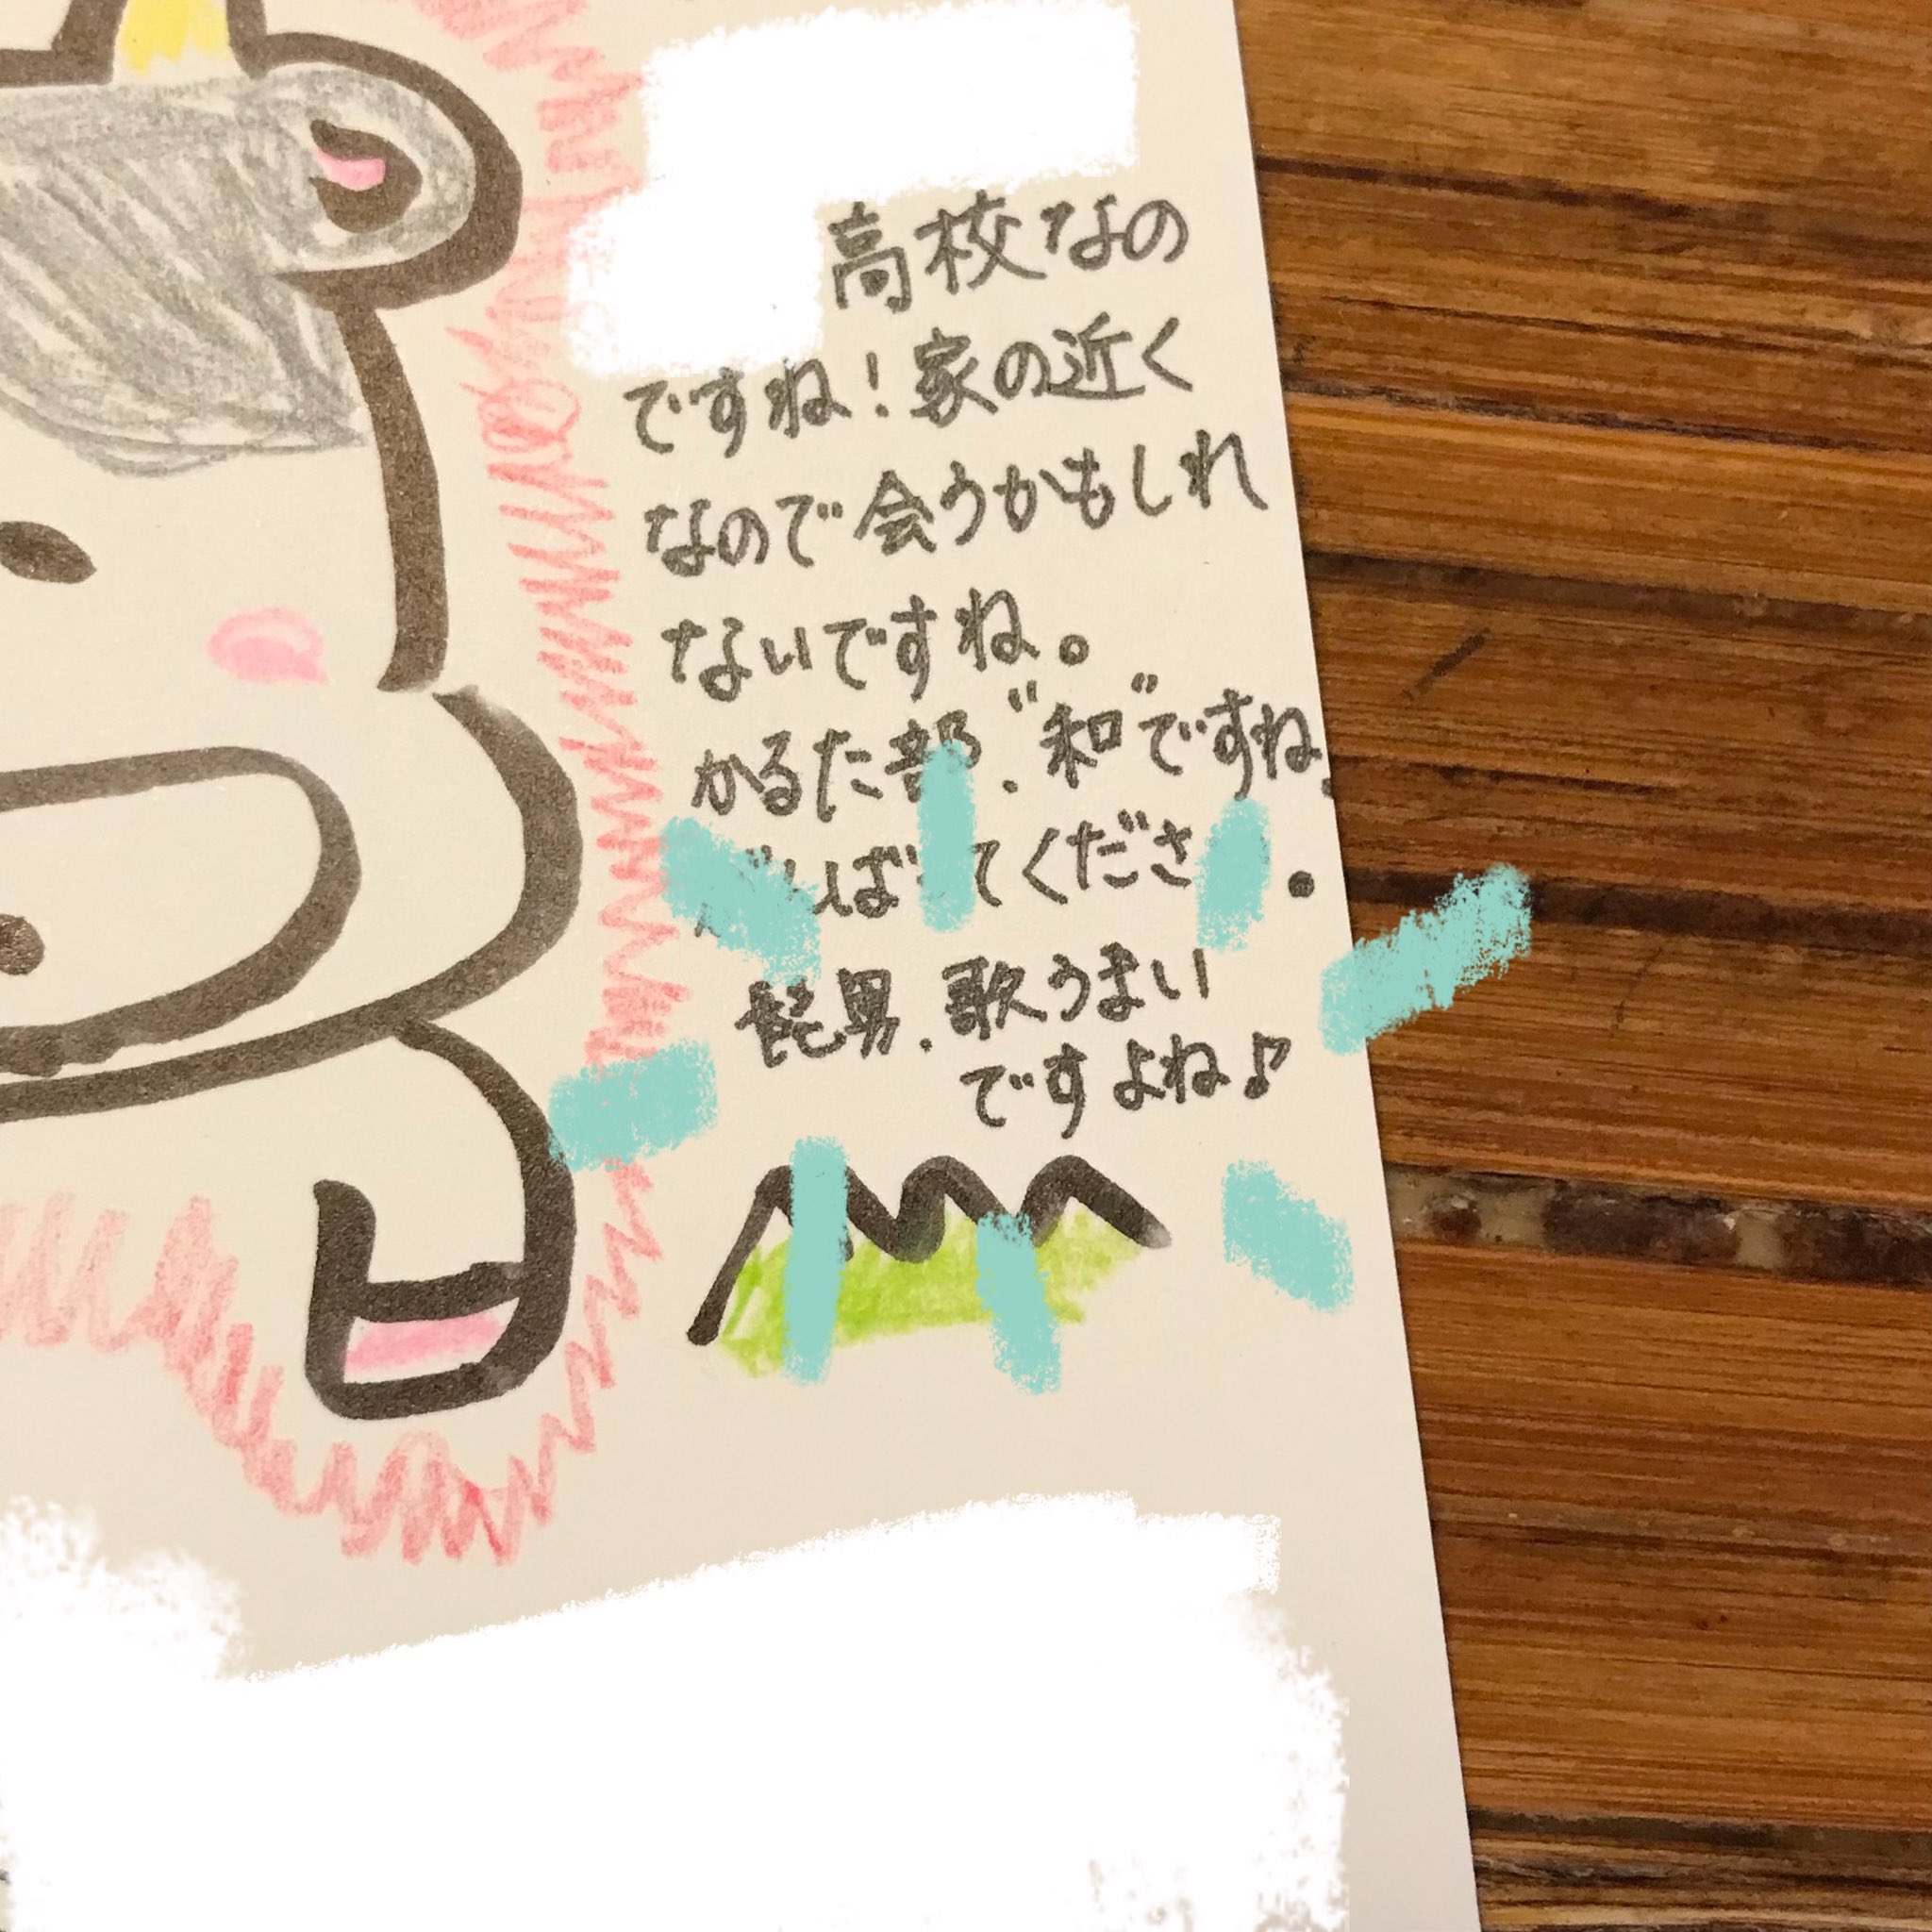 高校なの
ですね!家の近く
なので会うかもしれ
ないですね。
かるた部."和"ですね
ばてくださ。
髭男.歌うまい
ですよね♪